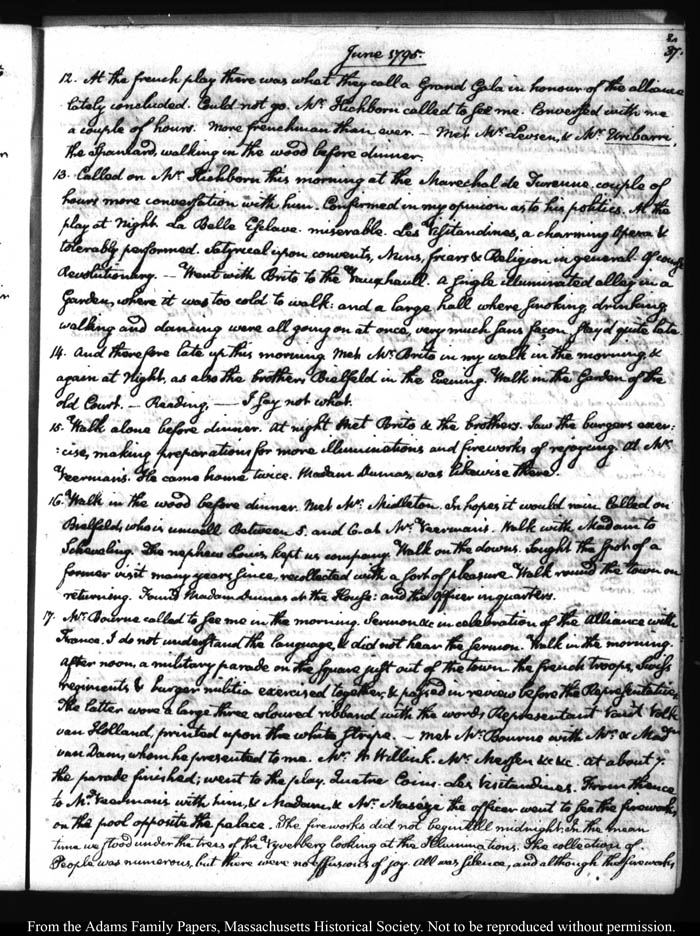 2.
37.
June 1795.
12. At the french play there was what they call a Grand Gala in honour of the alliance
lately concluded. Could not go. Mr. Hichborn called to see me. Conversed with me
a couple of hours. More frenchman than ever. — Met Mr. Levsen, & Mr. Uribarri,
the Spaniard, walking in the wood before dinner.
13. Called on Mr. Hichborn this morning at the Marechal de Turenne, couple of
hours more conversation with him. Confirmed in my opinion as to his politics. At the
play at Night. La Belle Esclave. miserable. Les Visitandines, a charming Opera &
tolerably performed. Satyrical upon convents, Nuns, friars & Religion in general. Of course
Revolutionary. — Went with Brito to the Vauxhaull. A single illuminated alley in a
Garden, where it was too cold to walk: and a large hall where smoking drinking
walking and dancing were all going on at once, very much sans façon. Stay'd quite late
14. And therefore late up this morning. Met Mr. Brito in my walk in the morning, &
again at Night, as also the brothers Bielfeld in the Evening. Walk in the Garden of the
old Court. — Reading, — I say not what.
15. Walk alone before dinner. At night met Brito & the brothers. Saw the burgers exer:
:cise, making preparations for more illuminations and fireworks of rejoycing. At Mr.
Veerman's. He came home twice. Madam Dumas, was likewise there.
16. Walk in the wood before dinner. Met Mr. Midleton. In hopes it would rain. Called on
Bielfeld, who is unwell. Between 5. and 6. at Mr. Veerman's. Walk with Madam to
Scheveling. The nephew Louis, kept us company. Walk on the downs. Sought the spot of a
former visit many years since, recollected with a sort of pleasure. Walk round the town on
returning. Found Madam Dumas at the House: and the officer in quarters.
17. Mr. Bourne called to see me in the morning. Sermon &c in celebration of the Alliance with
France. I do not understand the language, & did not hear the Sermon. Walk in the morning.
After noon, a military parade on the square just out of the town. the french troops, Swiss
regiments & burger militia exercised together, & passed in review before the Representatives
The latter wore a large three coloured ribband with the words Representant van't Volk
van Holland, printed upon the white stripe. — Met Mr. Bourne with Mr. & Madm
van Dam, whom he presented to me. Mr. W. Willink. Mr. &c &c. At about 7.
the parade finished; went to the play. Quatre Coins. Les Visitandines. From thence
to Mr. Veerman's with him, & Madam, & Mr. the officer went to see the fireworks,
on the pool opposite the palace. The fireworks did not begin till midnight. In the mean
time we stood under the trees of the Vyverberg looking at the Illuminations. The collection of
People was numerous, but there were no effusions of joy. All was silence, and although the fireworks
From the Adams Family Papers, Massachusetts Historical Society. Not to be reproduced without permission.